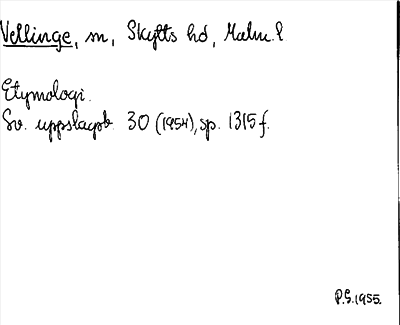 Vellinge, sn, Skytts hd, Malm. l
Etymologi.
Sv. uppslagsb. 30 (1954), sp. 1315 f.
P.G. 1955.